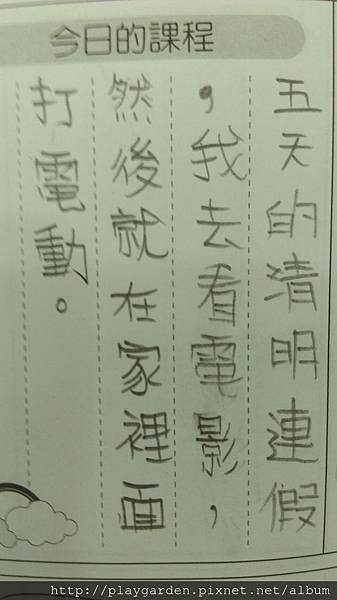 今日的課程
五天的清明連假
，我去看電影，
然後就在家裡面
打電動。
http://playgarden.pixnet.net/album